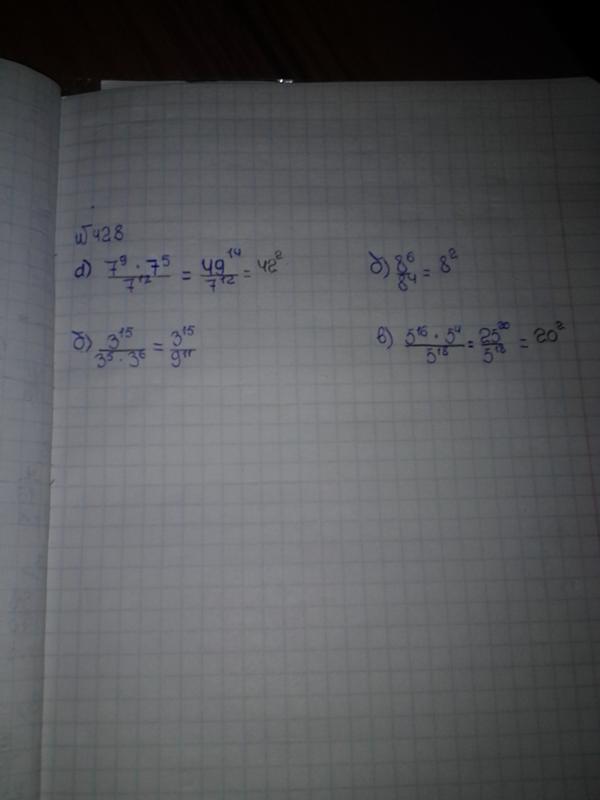 №428
а) 7⁹ · 7⁵ / 7¹² = 49¹⁴ / 7¹² = 42²
б) 8⁶ / 8⁴ = 8²
б) 3¹⁵ / 3⁵ · 3⁶ = 3¹⁵ / 9¹¹
в) 5¹⁶ · 5⁴ / 5¹⁸ = 25²⁰ / 5¹⁸ = 20²